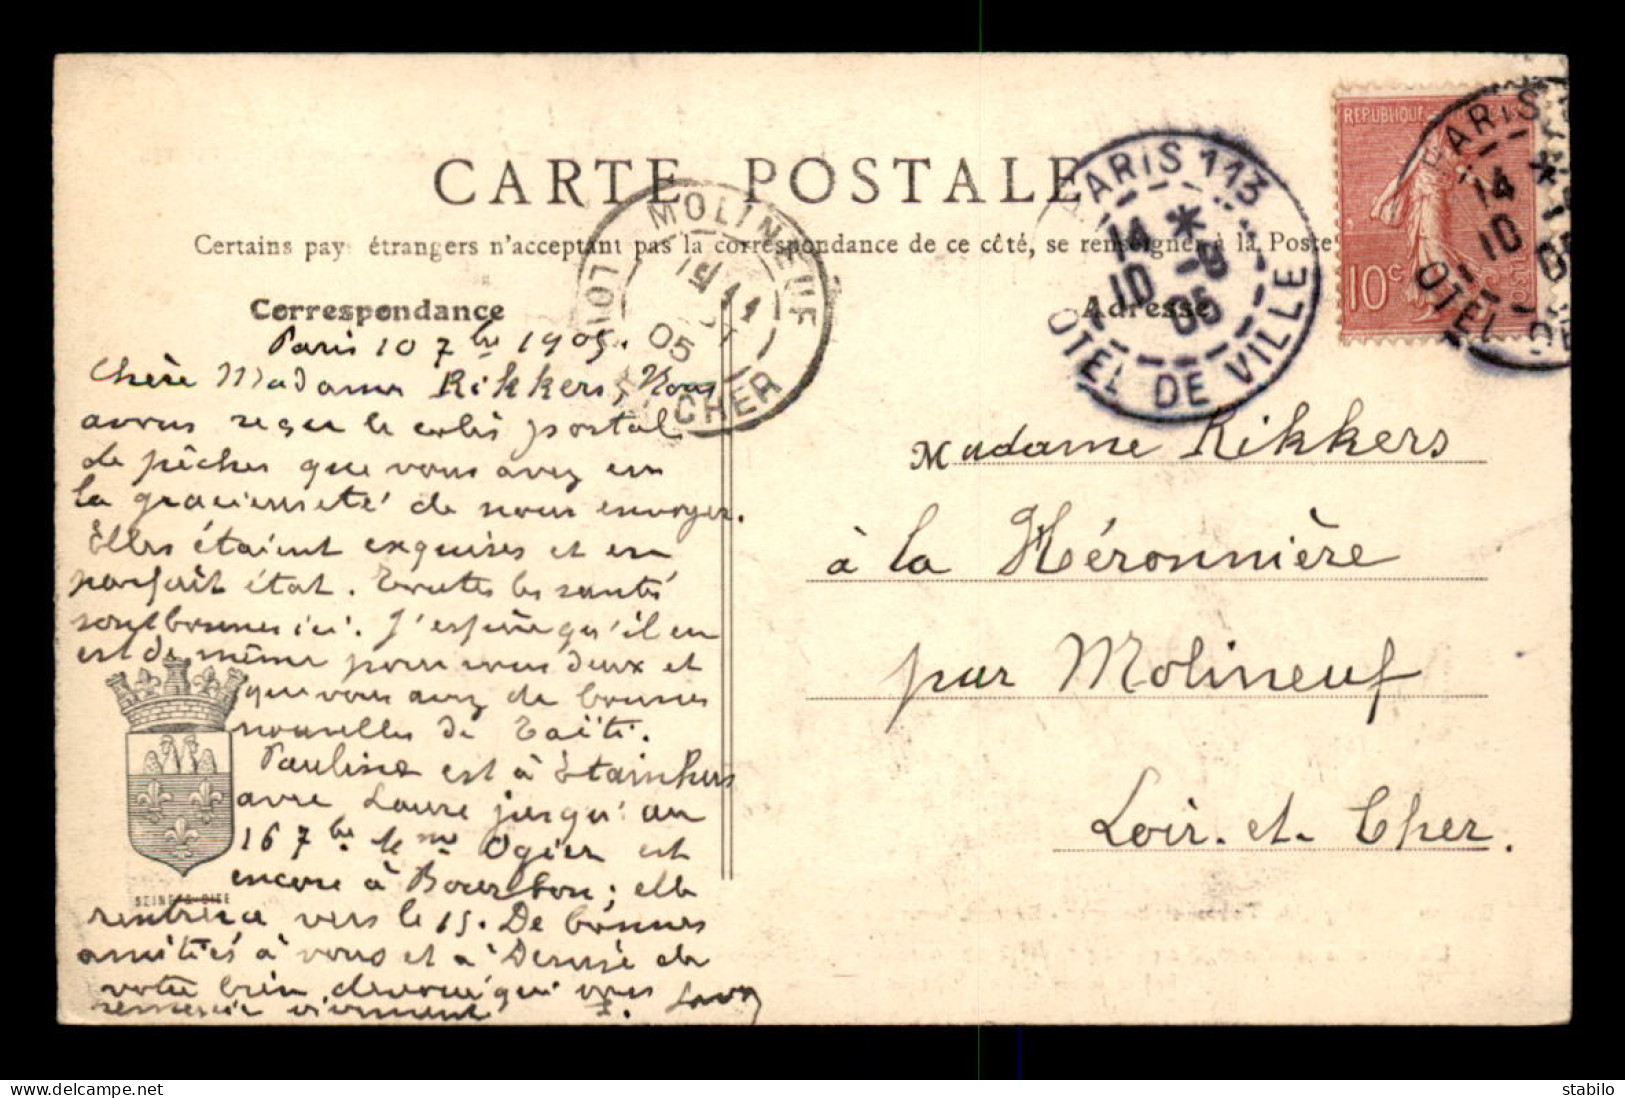 CARTE POSTALE
Certains pays étrangers n'acceptant pas la correspondance de ce côté, se renseigner à la Poste
Correspondance
Adresse
MOLINEUF
11
05
LOIR
CHER
PARIS 113
14 * 9
10 05
HOTEL DE VILLE
REPUBLIQUE
10c
PARIS
14 *
10 05
HOTEL DE
Paris 10 7bre 1905.
Chère Madame Rikkers, Nous
avons reçu le colis postal
de pêches que vous avez eu
la gracieuseté de nous envoyer.
Elles étaient exquises et en
parfait état. Toutes les santés
sont bonnes ici. J'espère qu'il en
est de même pour vous deux et
que vous avez de bonnes
nouvelles de Taïti.
Pauline est à Étainhus
avec Laure jusqu'au
16 7bre Mme Ogier est
encore à Bourbon; elle
rentrera vers le 15. De bonnes
amitiés à vous et à Denise de
votre bien dévoué qui vous
remercie vivement
SEINE & OISE
Madame Rikkers
à la Héronnière
par Molineuf
Loir-et-Cher.
stabilo